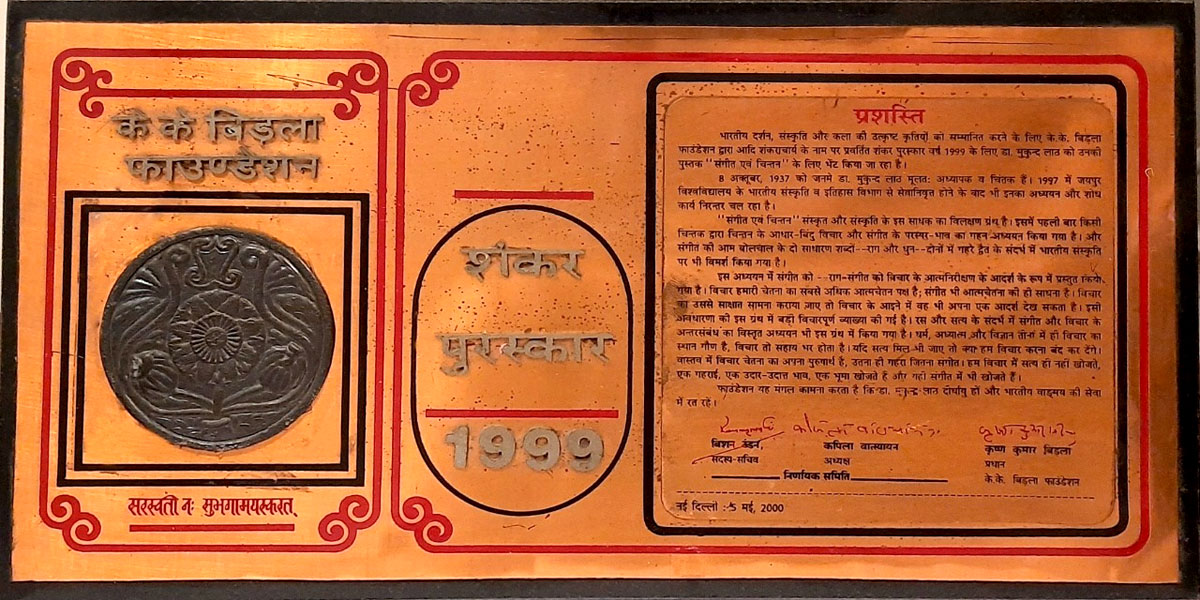 के के बिड़ला
फाउण्डेशन
सरस्वती नः सुभगामयस्करत्
शंकर
पुरस्कार
1999
प्रशस्ति
भारतीय दर्शन, संस्कृति और कला की उत्कृष्ट कृतियों को सम्मानित करने के लिए के.के. बिड़ला
फाउंडेशन द्वारा आदि शंकराचार्य के नाम पर प्रवर्तित शंकर पुरस्कार वर्ष 1999 के लिए डा. मुकुन्द लाठ को उनकी
पुस्तक "संगीत एवं चिन्तन" के लिए भेंट किया जा रहा है।
8 अक्तूबर, 1937 को जनमे डा. मुकुन्द लाठ मूलत: अध्यापक व चिंतक हैं। 1997 में जयपुर
विश्वविद्यालय के भारतीय संस्कृति व इतिहास विभाग से सेवानिवृत्त होने के बाद भी इनका अध्ययन और शोध
कार्य निरन्तर चल रहा है।
"संगीत एवं चिन्तन" संस्कृत और संस्कृति के इस साधक का विलक्षण ग्रंथ है। इसमें पहली बार किसी
चिन्तक द्वारा चिन्तन के आधार-बिंदु विचार और संगीत के परस्पर-भाव का गहन अध्ययन किया गया है। और
संगीत की आम बोलचाल के दो साधारण शब्दों--राग और धुन--दोनों में गहरे द्वैत के संदर्भ में भारतीय संस्कृति
पर भी विमर्श किया गया है।
इस अध्ययन में संगीत को --राग-संगीत को विचार के आत्मनिरीक्षण के आदर्श के रूप में प्रस्तुत किया
गया है। विचार हमारी चेतना का सबसे अधिक आत्मचेतन पक्ष है; संगीत भी आत्मचेतना की ही साधना है। विचार
का उससे साक्षात सामना कराया जाए तो विचार के आइने में वह भी अपना एक आदर्श देख सकता है। इसी
अवधारणा की इस ग्रंथ में बड़ी विचारपूर्ण व्याख्या की गई है। रस और सत्य के संदर्भ में संगीत और विचार के
अन्तरसंबंध का विस्तृत अध्ययन भी इस ग्रंथ में किया गया है। धर्म, अध्यात्म और विज्ञान तीनों में ही विचार का
स्थान गौण है, विचार तो सहाय भर होता है। यदि सत्य मिल भी जाए तो क्या हम विचार करना बंद कर देंगे।
वास्तव में विचार चेतना का अपना पुरुषार्थ है, उतना ही गहरा जितना संगीत। हम विचार में सत्य ही नहीं खोजते,
एक गहराई, एक उदार-उदात्त भाव, एक भूमा खोजते हैं और यही संगीत में भी खोजते हैं।
फाउंडेशन यह मंगल कामना करता है कि डा. मुकुन्द लाठ दीर्घायु हों और भारतीय वाङ्मय की सेवा
में रत रहें।
बिशन टंडन, कपिला वात्स्यायन कृष्ण कुमार बिड़ला
सदस्य-सचिव अध्यक्ष प्रधान
निर्णायक समिति के.के. बिड़ला फाउंडेशन
नई दिल्ली : 5 मई, 2000